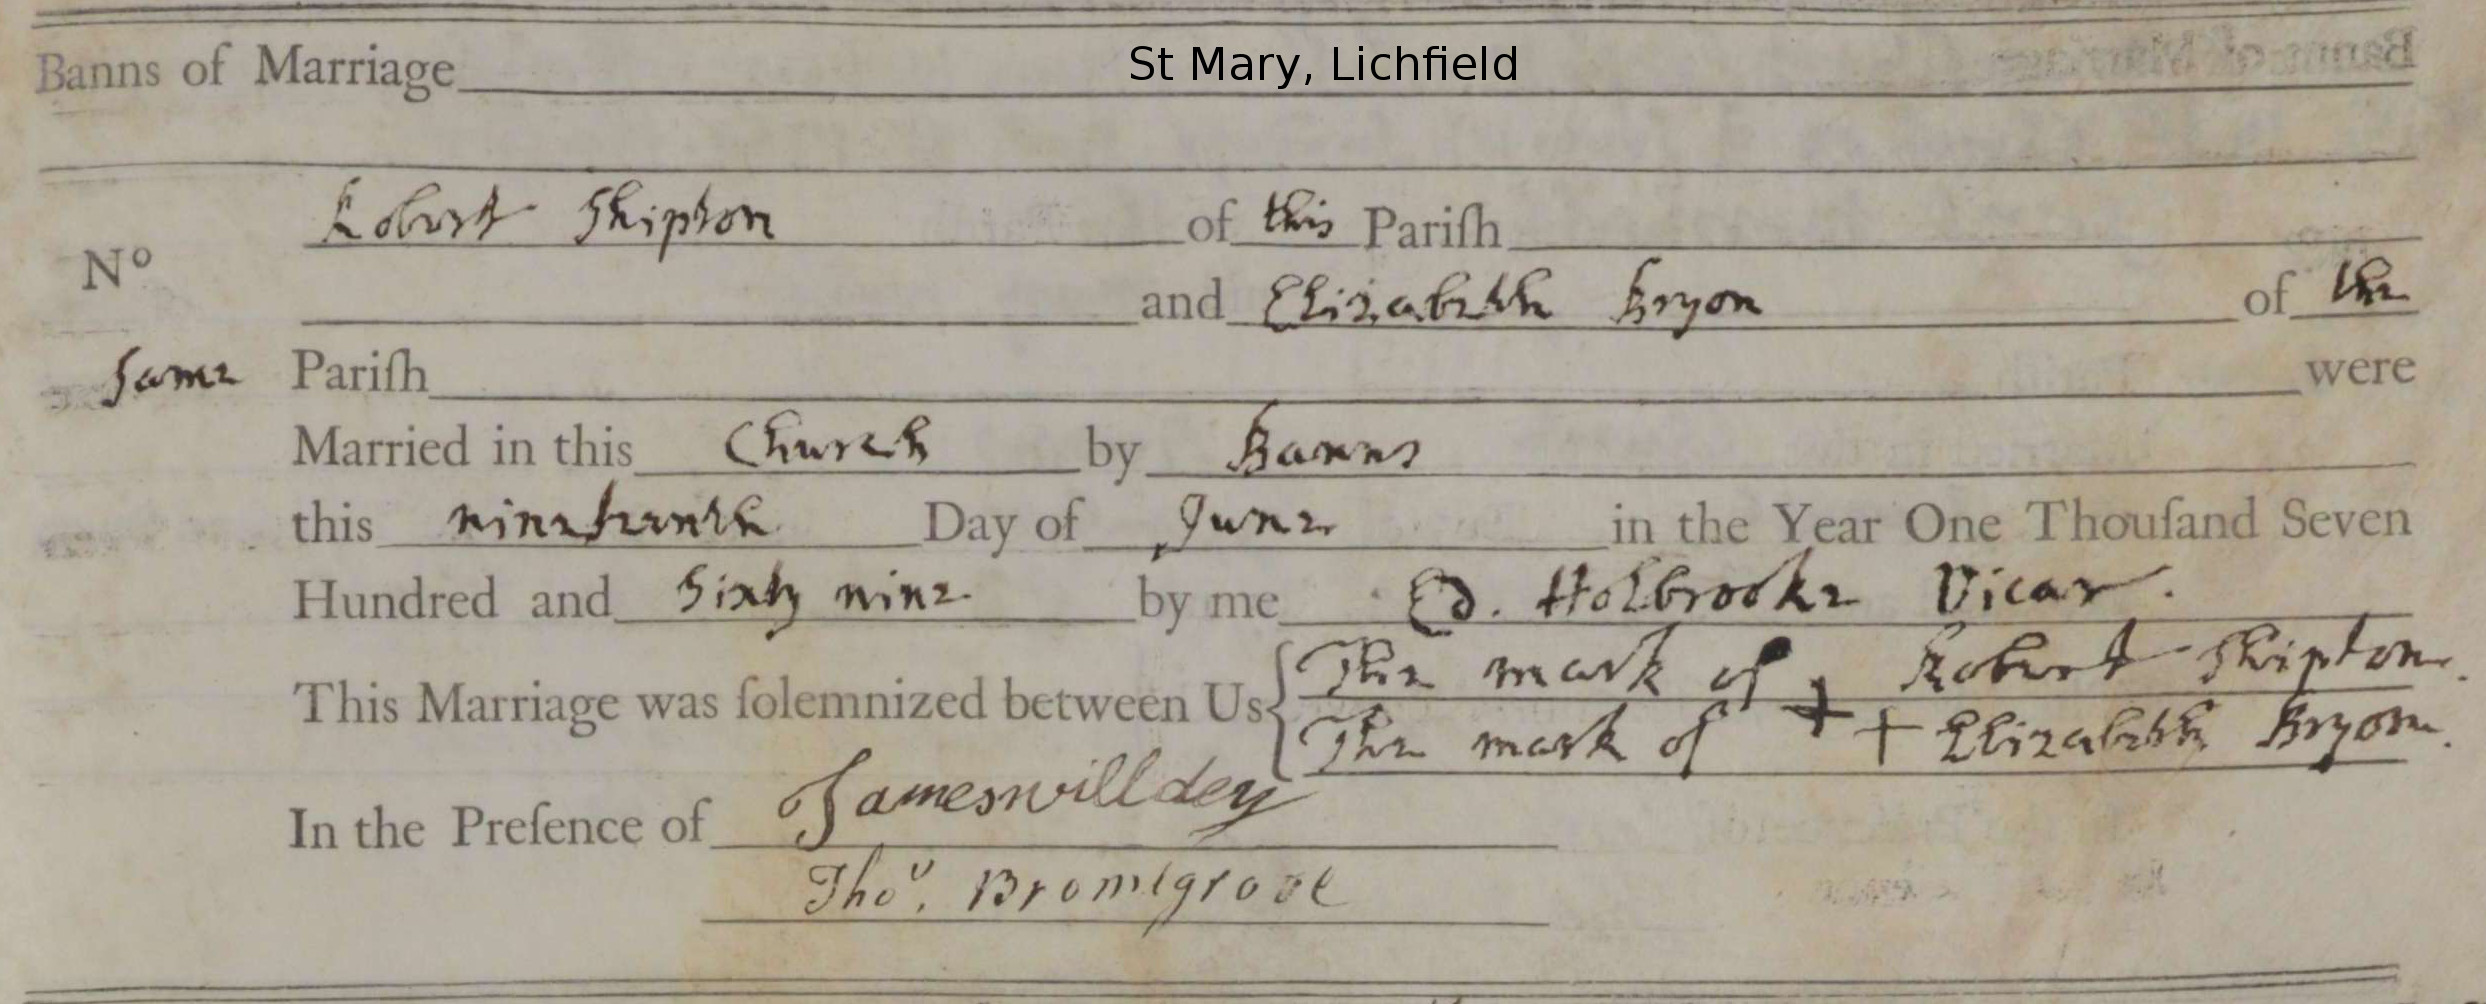 Banns of Marriage St Mary, Lichfield
Robert Shipton of this Pariſh
Nº
and Elizabeth Bryon of the
Same Pariſh were
Married in this Church by Banns
this nineteenth Day of June in the Year One Thouſand Seven
Hundred and Sixty nine by me Ed. Holbrooke Vicar.
The mark of + Robert Shipton.
This Marriage was ſolemnized between Us
The mark of + Elizabeth Bryon.
In the Preſence of James willdey
Thoˢ. Bromſgrove